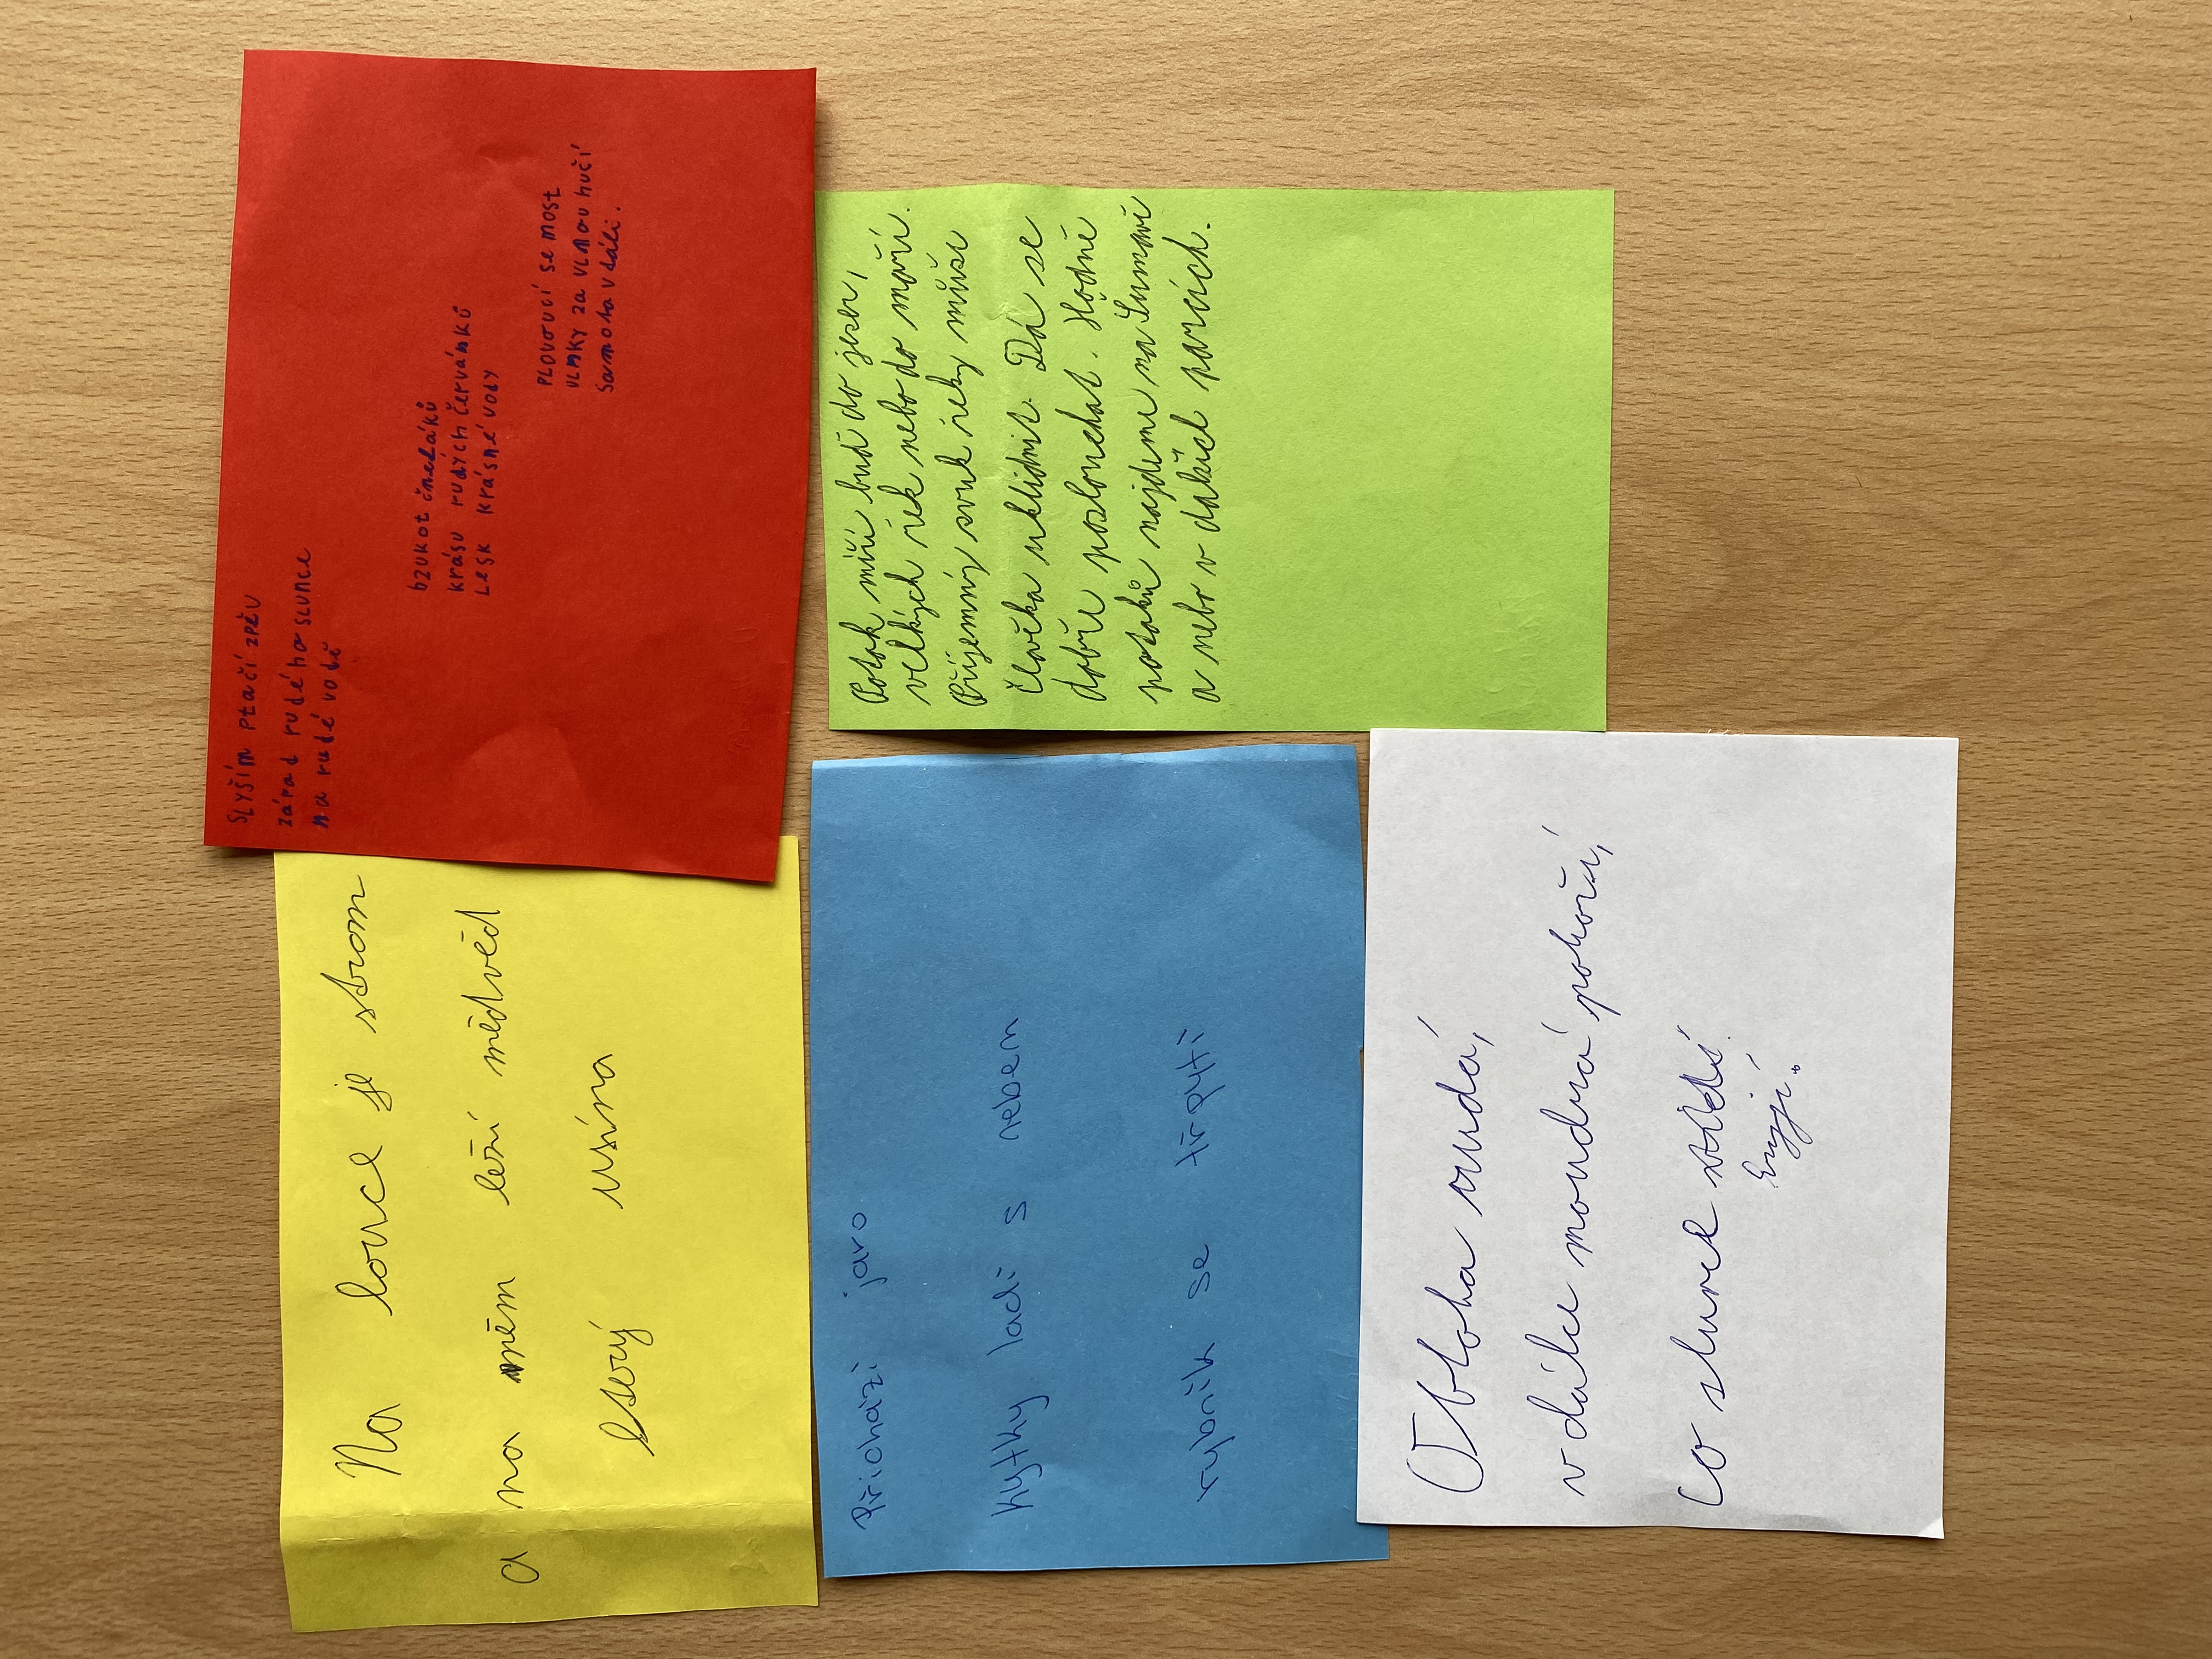 Na louce je strom
a na něm leží mědvěd
který usína
SLYŠÍM PtačÍ ZPĚV
západ rudého SLUNCE
na rudé vodě
bzukot čmeláků
krásu rudých červánků
Lesk krásné vody
PLOVOUCÍ SE MOST
VLNKY Za VLNOU hučí
Samota v dáli.
Přichází jaro
kytky ladí s nebem
rybník se třpytí
Potok míří buď do jezer,
velkých řek nebo do moří.
Příjemný zvuk řeky může
člověka uklidnit. Dá se
dobře poslouchat. Hodně
potoků najdeme na Šumavě
a nebo v dalších parcích.
Obloha rudá,
v dálce moudrá pohoří,
co slunce
kryjí.